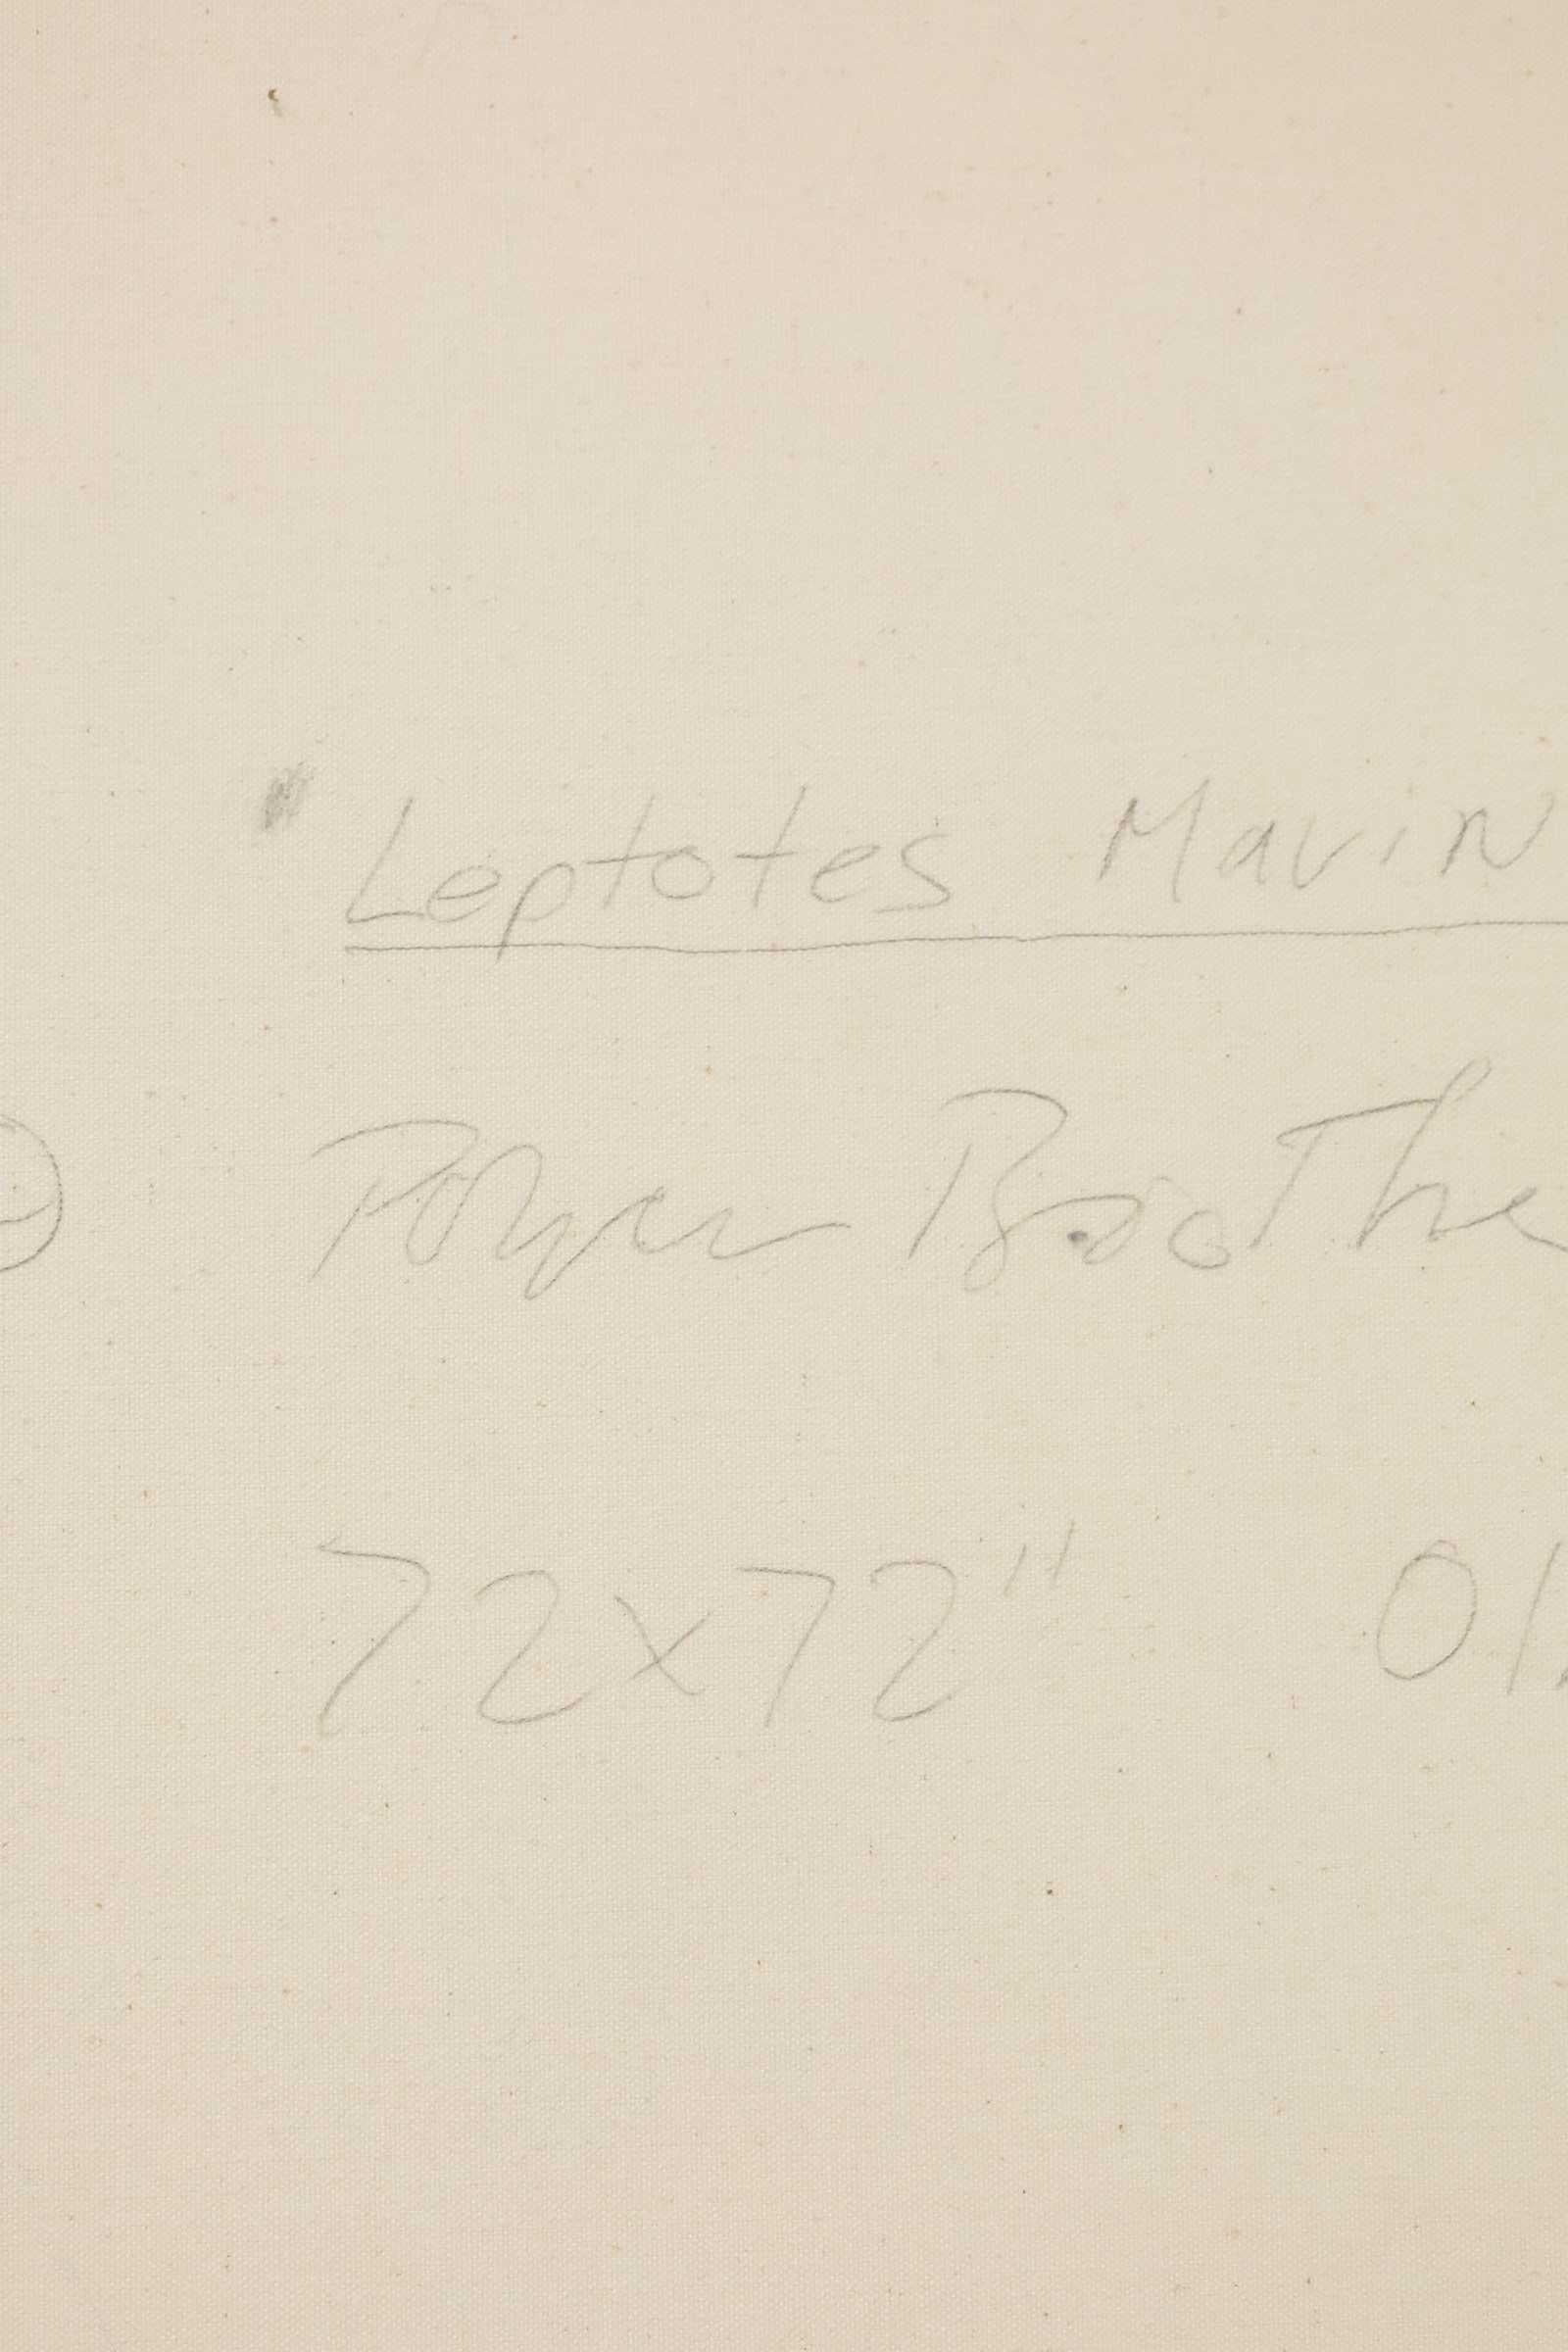 " Leptotes Marin
Roger Brothe
72x72" Oi